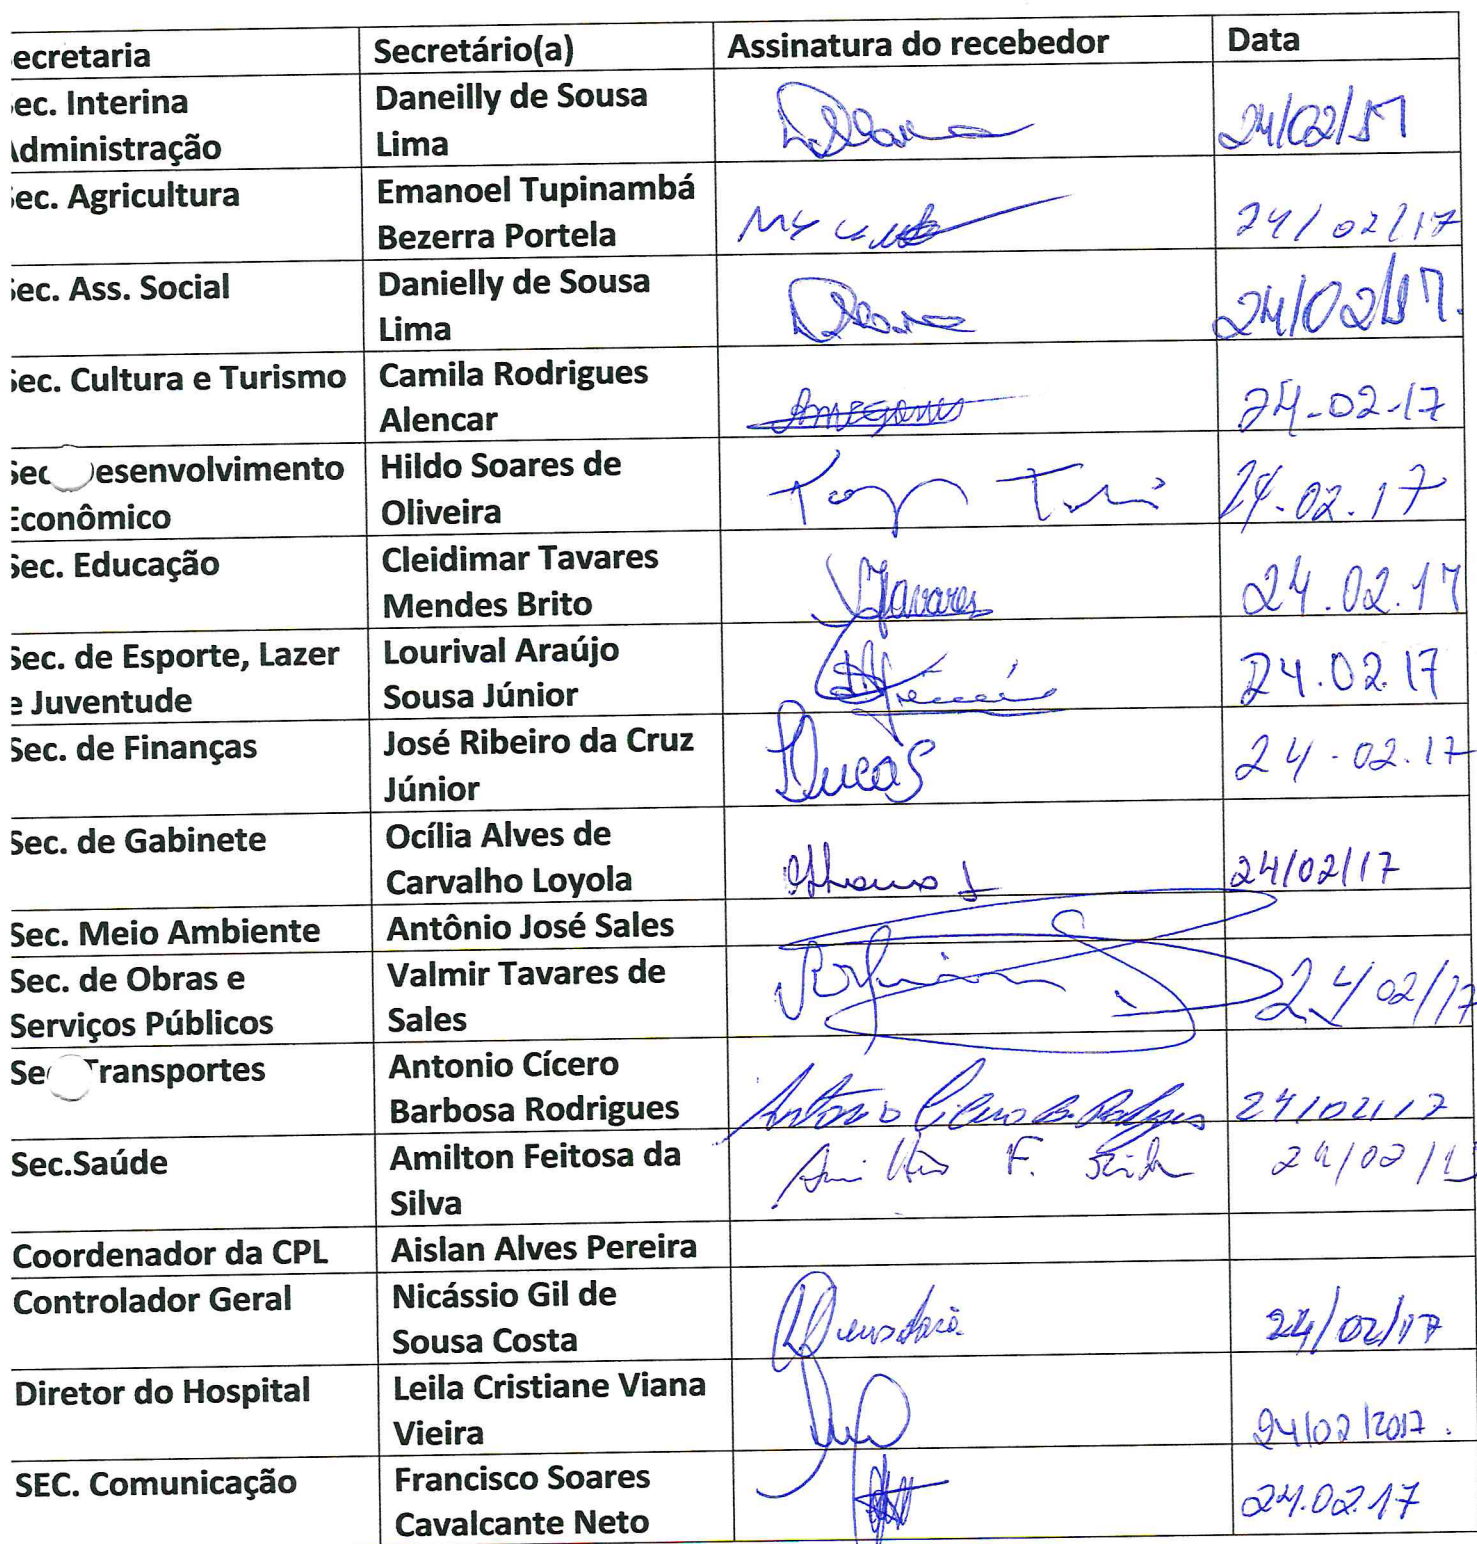 ecretaria Secretário(a) Assinatura do recebedor Data
ec. Interina Daneilly de Sousa
dministração Lima 24/02/17
ec. Agricultura Emanoel Tupinambá
Bezerra Portela 24/02/17
ec. Ass. Social Danielly de Sousa
Lima 24/02/17.
Sec. Cultura e Turismo Camila Rodrigues
Alencar 24-02-17
Sec esenvolvimento Hildo Soares de
Econômico Oliveira 24.02.17
Sec. Educação Cleidimar Tavares
Mendes Brito Tavares 24.02.17
Sec. de Esporte, Lazer Lourival Araújo
e Juventude Sousa Júnior 24.02.17
Sec. de Finanças José Ribeiro da Cruz
Júnior Lucas 24-02.17
Sec. de Gabinete Ocília Alves de
Carvalho Loyola 24/02/17
Sec. Meio Ambiente Antônio José Sales
Sec. de Obras e Valmir Tavares de
Serviços Públicos Sales 24/02/17
Se Transportes Antonio Cícero
Barbosa Rodrigues Antonio Cicero B. Rodrigues 24/02/17
Sec.Saúde Amilton Feitosa da Amilton F. 24/02/1
Silva
Coordenador da CPL Aislan Alves Pereira
Controlador Geral Nicássio Gil de
Sousa Costa 24/02/17
Diretor do Hospital Leila Cristiane Viana
Vieira 24/02/2017.
SEC. Comunicação Francisco Soares
Cavalcante Neto 24.02.17